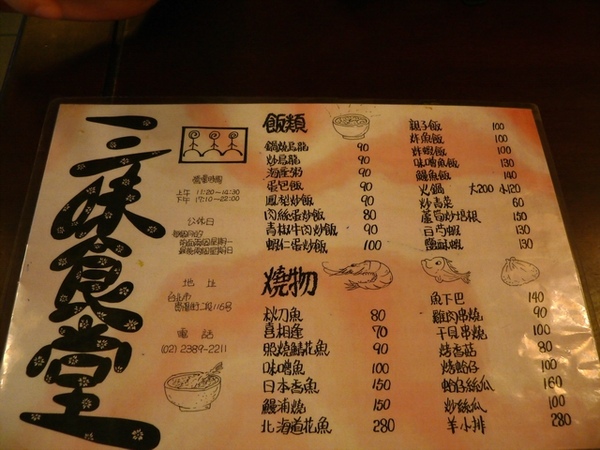 三味食堂
營業時間
上午 11:20~14:30
下午 17:10~22:00
公休日
地址
台北市
貴陽街二段116號
電話
(02) 2389-2211
飯類
鍋燒烏龍 90
炒烏龍 90
海產粥 90
蛋包飯 90
鳳梨炒飯 90
肉絲蛋炒飯 80
青椒牛肉炒飯 90
蝦仁蛋炒飯 100
親子飯 100
炸魚飯 100
炸蝦飯 100
味噌魚飯 130
鰻魚飯 140
火鍋 大200 小120
炒青菜 60
蘆筍炒培根 150
白芍蝦 130
鹽酥蝦 130
燒物
秋刀魚 80
喜相逢 70
照燒鯖花魚 90
味噌魚 100
日本香魚 150
鰻浦燒 150
北海道花魚 280
魚下巴 140
雞肉串燒 90
干貝串燒 100
烤香菇 80
烤蛤仔 100
蛤仔絲瓜 160
炒絲瓜 100
羊小排 280